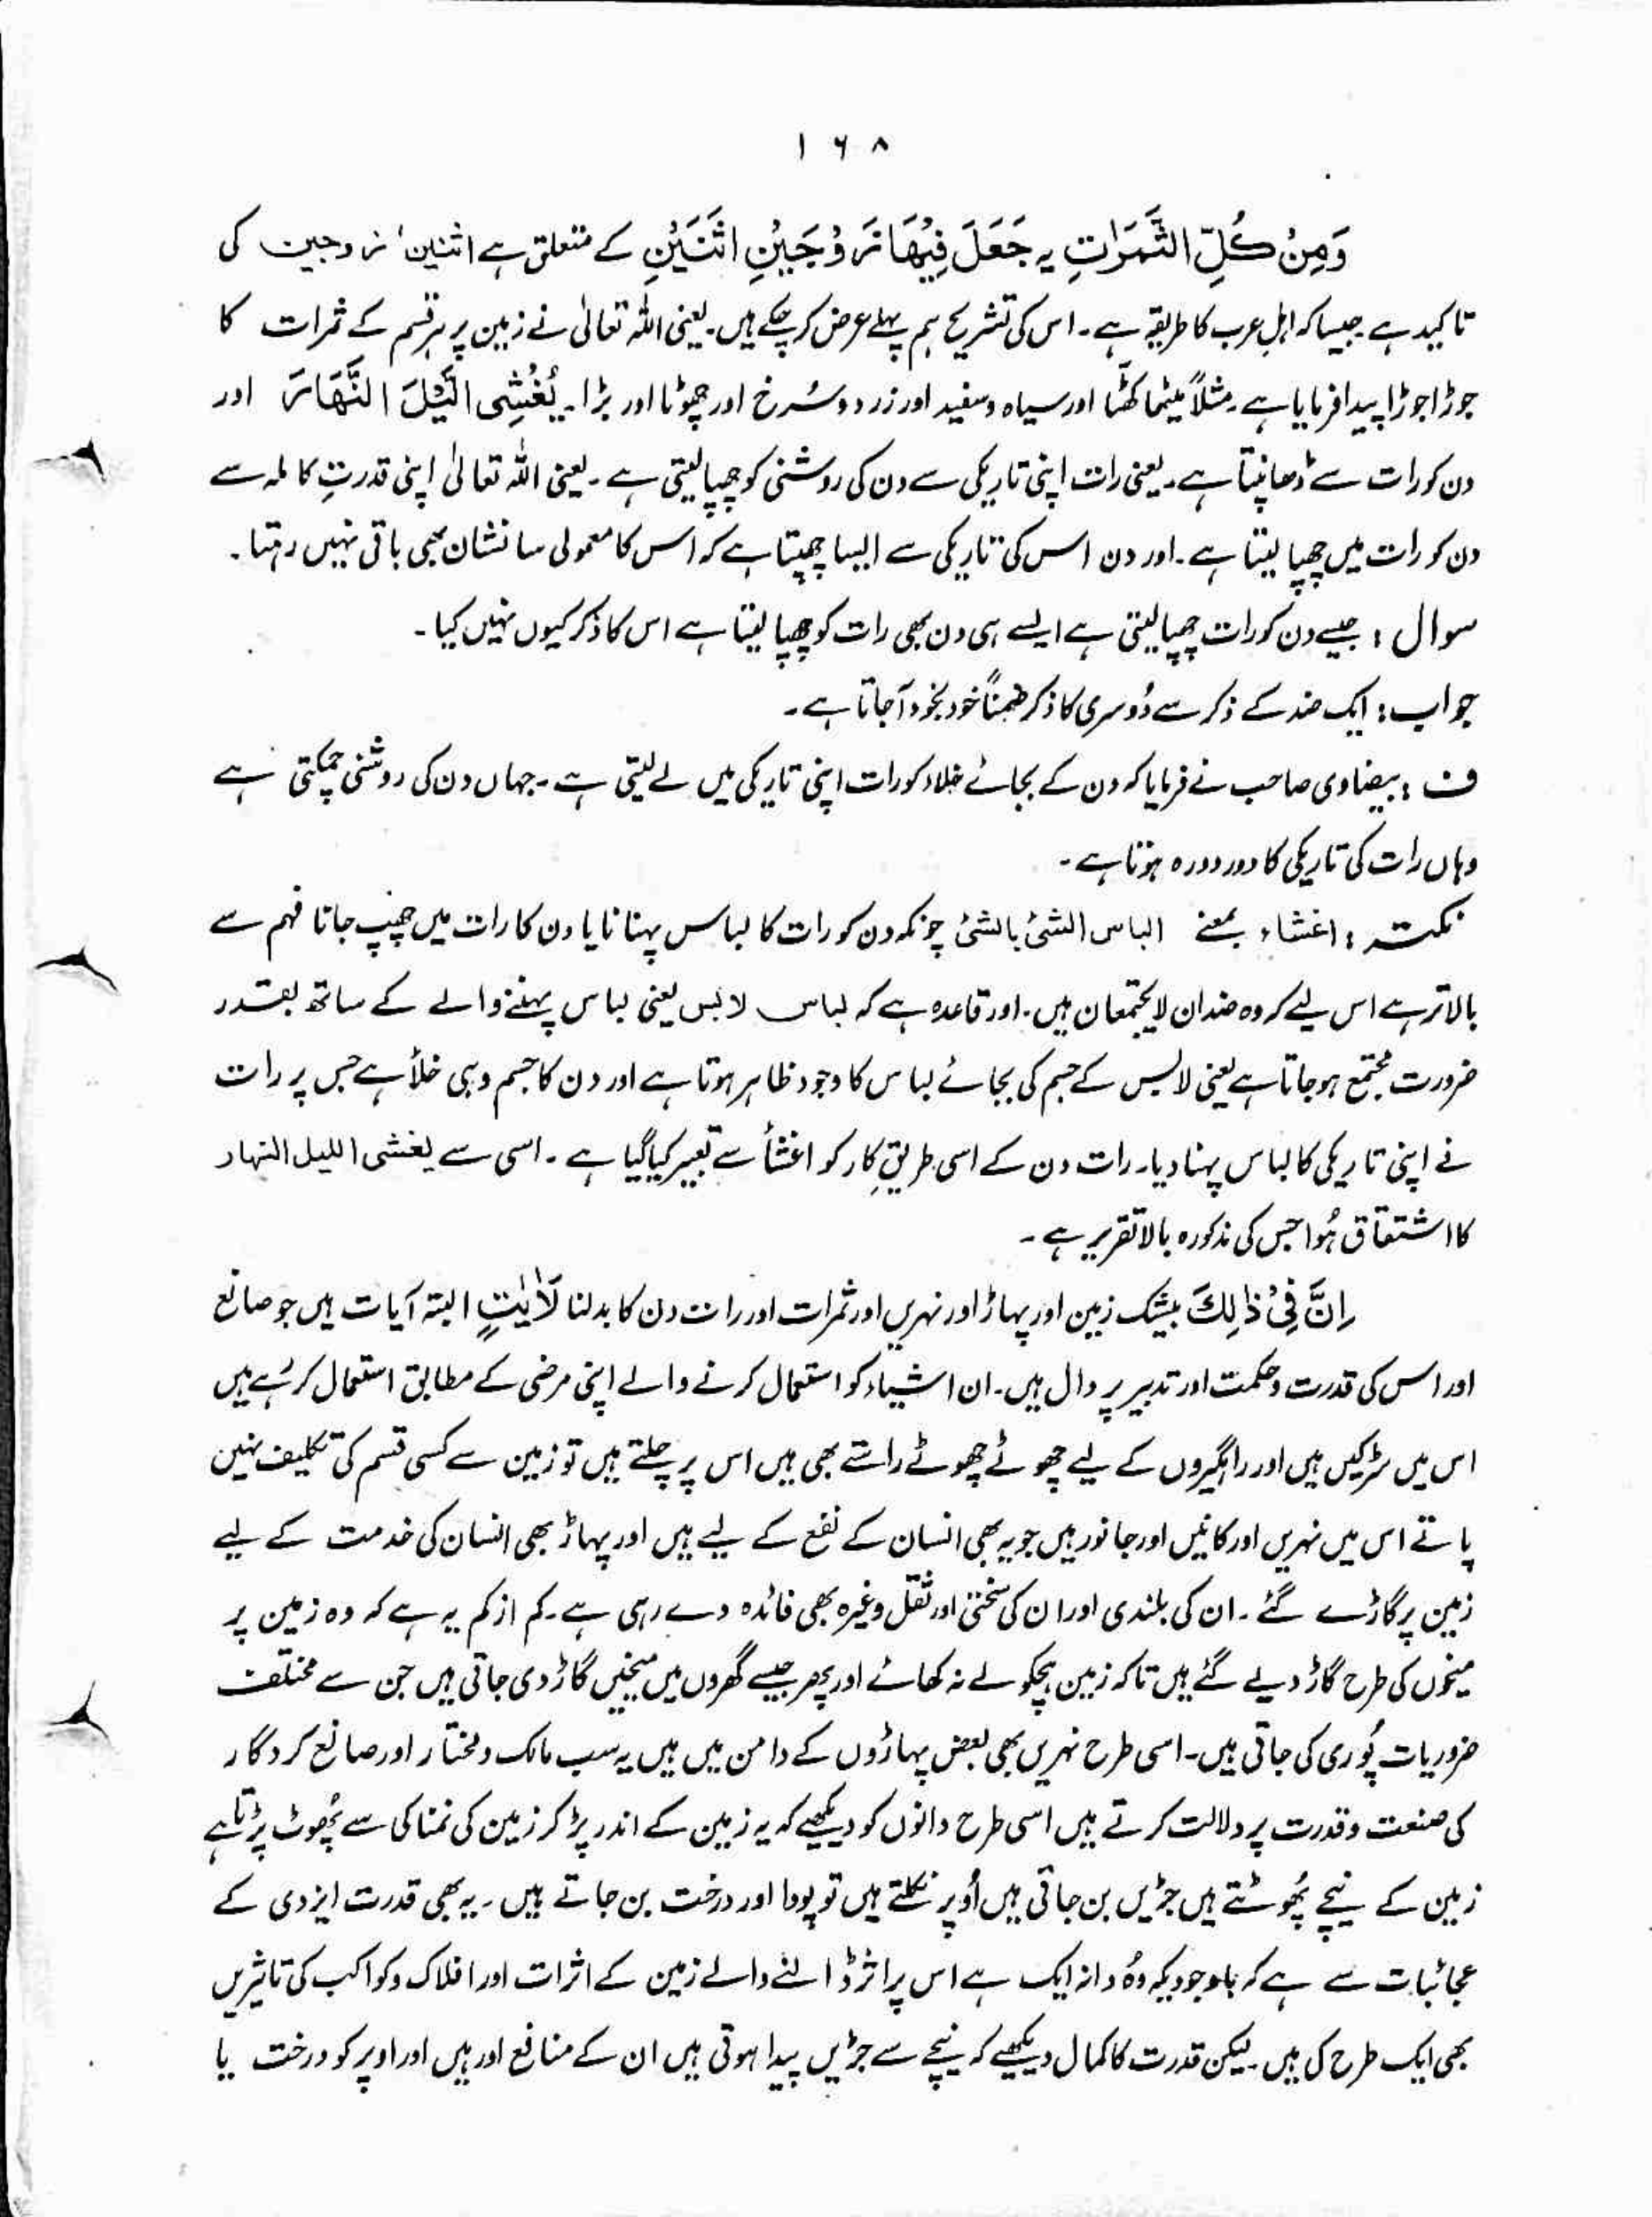 ۱۶۸
وَمِنْ كُلِّ الثَّمَرَاتِ یہ جَعَلَ فِيْهَا زَوْجَيْنِ اثْنَيْنِ کے متعلق ہے اثنین، زوجین کی
تاکید ہے جیسا کہ اہلِ عرب کا طریقہ ہے۔ اس کی تشریح ہم پہلے عرض کر چکے ہیں۔ یعنی اللہ تعالیٰ نے زمین پر ہر قسم کے ثمرات کا
جوڑا جوڑا پیدا فرمایا ہے۔ مثلاً میٹھا کھٹّا اور سیاہ و سفید اور زرد و سُرخ اور چھوٹا اور بڑا۔ يُغْشِى الَّيْلَ النَّهَارَ اور
دن کو رات سے ڈھانپتا ہے۔ یعنی رات اپنی تاریکی سے دن کی روشنی کو چھپا لیتی ہے۔ یعنی اللہ تعالیٰ اپنی قدرتِ کاملہ سے
دن کو رات میں چھپا لیتا ہے۔ اور دن اس کی تاریکی سے ایسا چھپتا ہے کہ اس کا معمولی سا نشان بھی باقی نہیں رہتا۔
سوال : جیسے دن کو رات چھپا لیتی ہے ایسے ہی دن بھی رات کو چھپا لیتا ہے اس کا ذکر کیوں نہیں کیا۔
جواب : ایک ضد کے ذکر سے دُوسری کا ذکر ضمناً خود بخود آجاتا ہے۔
ف : بیضاوی صاحب نے فرمایا کہ دن کے بجائے خلاء کو رات اپنی تاریکی میں لے لیتی ہے۔ جہاں دن کی روشنی چمکتی ہے
وہاں رات کی تاریکی کا دور دورہ ہوتا ہے۔
نکتہ : اغشاء بمعنے الباس الشیٔ بالشیٔ چونکہ دن کو رات کا لباس پہنانا یا دن کا رات میں چھپ جانا فہم سے
بالاتر ہے اس لیے کہ وہ ضدان لا یجتمعان ہیں۔ اور قاعدہ ہے کہ لباس لابس یعنی لباس پہننے والے کے ساتھ بقدر
ضرورت مجتمع ہو جاتا ہے یعنی لابس کے جسم کی بجائے لباس کا وجود ظاہر ہوتا ہے اور دن کا جسم وہی خلأ ہے جس پر رات
نے اپنی تاریکی کا لباس پہنا دیا۔ رات دن کے اسی طریقِ کار کو اغشأ سے تعبیر کیا گیا ہے۔ اسی سے یغشی اللیل النہار
کا اشتقاق ہُوا جس کی مذکورہ بالا تقریر ہے۔
اِنَّ فِيْ ذٰلِكَ بیشک زمین اور پہاڑ اور نہریں اور ثمرات اور رات دن کا بدلنا لَاٰيٰتٍ البتہ آیات ہیں جو صانع
اور اس کی قدرت و حکمت اور تدبیر پر دال ہیں۔ ان اشیاء کو استعمال کرنے والے اپنی مرضی کے مطابق استعمال کر رہے ہیں
اس میں سڑکیں ہیں اور راہگیروں کے لیے چھوٹے چھوٹے راستے بھی ہیں اس پر چلتے ہیں تو زمین سے کسی قسم کی تکلیف نہیں
پاتے اس میں نہریں اور کانیں اور جانور ہیں جو یہ بھی انسان کے نفع کے لیے ہیں اور پہاڑ بھی انسان کی خدمت کے لیے
زمین پر گاڑے گئے۔ ان کی بلندی اور ان کی سختی اور ثقل وغیرہ بھی فائدہ دے رہی ہے۔ کم از کم یہ ہے کہ وہ زمین پر
میخوں کی طرح گاڑ دیے گئے ہیں تاکہ زمین ہچکولے نہ کھائے اور پھر جیسے گھروں میں میخیں گاڑ دی جاتی ہیں جن سے مختلف
ضروریات پُوری کی جاتی ہیں۔ اسی طرح نہریں بھی بعض پہاڑوں کے دامن میں ہیں یہ سب مالک و مختار اور صانع کردگار
کی صنعت و قدرت پر دلالت کرتے ہیں اسی طرح دانوں کو دیکھیے کہ یہ زمین کے اندر پڑ کر زمین کی نمناکی سے پُھوٹ پڑتا ہے
زمین کے نیچے پُھوٹتے ہیں جڑیں بن جاتی ہیں اُوپر نکلتے ہیں تو پودا اور درخت بن جاتے ہیں۔ یہ بھی قدرت ایزدی کے
عجائبات سے ہے کہ باوجودیکہ وُہ دانہ ایک ہے اس پر اثر ڈالنے والے زمین کے اثرات اور افلاک و کواکب کی تاثیریں
بھی ایک طرح کی ہیں۔ لیکن قدرت کا کمال دیکھیے کہ نیچے سے جڑیں پیدا ہوتی ہیں ان کے منافع اور ہیں اور اوپر کو درخت یا